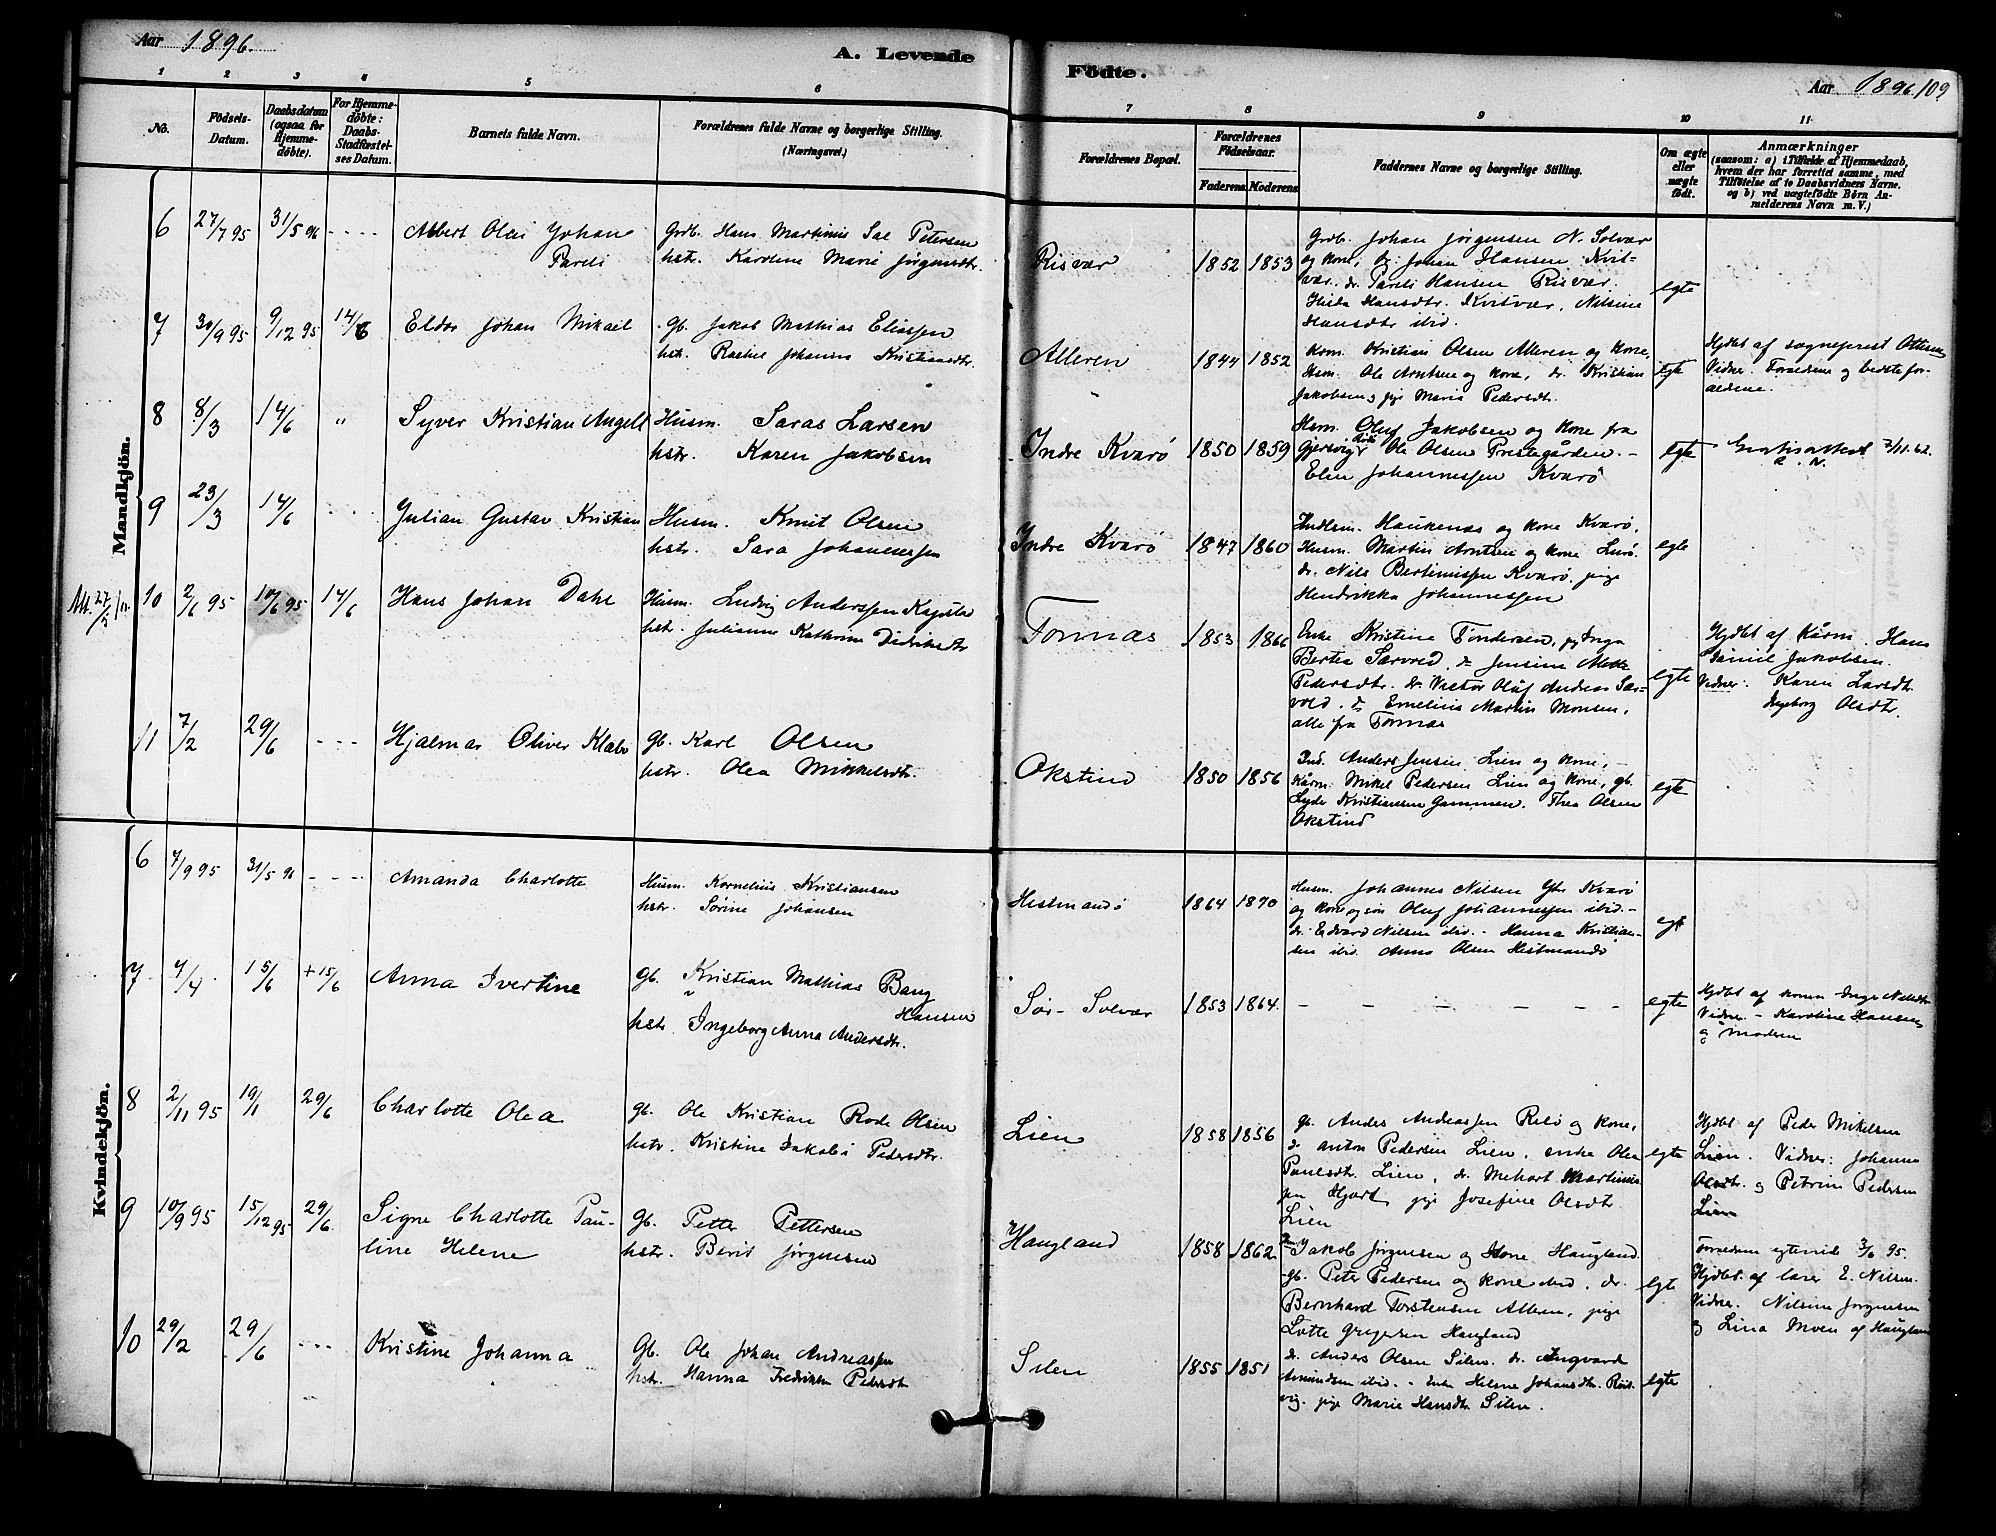 Aar 1896.
A. Levende
Födte.
Aar 1896. 109
1 2 3 4 5 6 7 8 9 10 11
No.
Födsels-Datum.
Daabsdatum (ogsaa for Hjemme-döbte).
For Hjemme-döbte: Daabs-Stadfæstel-ses Datum.
Barnets fulde Navn.
Forældrenes fulde Navne og borgerlige Stilling. (Næringsvei.)
Forældrenes Bopæl.
Forældrenes Födselsaar.
Faderens. Moderens.
Faddernes Navne og borgerlige Stilling.
Om ægte eller uægte födt.
Anmærkninger
(saasom: a) i Tilfælde af Hjemmedaab, hvem der har forrettet samme, med Tilföielse af to Daabsvidners Navne. og b) ved uægtefödte Börn An-melderens Navn m. V.)
Mandkjön.
6 27/7 95 31/5 96 - - - -
Albert Olai Johan
Pareli
Grdb. Hans Martinus Sal Petersen
hstr. Karoline Marie Jørgensdtr.
Risvær 1852 1853
Grdb. Johan Jørgensen N. Solvær
og kone, dr. Johan Hansen Kvit-
vær. dr. Pareli Hansen Risvær.
Hilda Hansdtr. Kvitvær, Nilsine
Hansdtr ibid.
egte
7 30/9 95 9/12 95 14/6
Eldor Johan Mikael
Gb. Jakob Mathias Eliassen
hstr. Rachel Johanna Kristiansdtr.
Alleren 1844 1852
Kom. Kristian Olsen Alleren og kone,
Hsm. Ole Arntsen og kone, dr. Kristian
Jakobsen, pige Maria Pedersdtr.
egte
Hjdbt af sogneprest Ottesen
Vidner. Forældrene og bedstefor-
ældrene.
8 8/3 14/6 "
Syver Kristian Angell
Husm. Saras Larsen
hstr. Karen Jakobsen
Indre Kvarø 1850 1859
Hsm. Oluf Jakobsen og kone fra
Gjersvig, Ole Olsen Prestegården. -
Elen Johannessen Kvarø
egte
7/11.62.
9 23/3 14/6
Julian Gustav Kristian
Husm. Knut Olsen
hstr. Sara Johannessen
Indre Kvarø 1847 1860
Haukenæs og kone Kvarø.
Husm. Martin Arntsen og kone Lurø.
dr. Nils Bertinussen Kvarø, pige
Hendrikka Johannessen
egte
Att. 27/5
10 2/6 95 10/6 95 14/6
Hans Johan Dahl
Husm. Ludvig Anderssen
hstr. Julianne Kathrine Didriksdtr
Tonnæs 1853 1866
Enke Kristina Tondersen, pg Inga
Bertea Sørvold, Jensine
Pedersdtr. dr Viktor Oluf Andreas Sør-
vold. Emelius Martin Monsen,
alle fra Tonnæs
egte
Hjdbt af Kårm. Hans
Daniel Jakobsen.
Vidner: Karen Larsdtr.
Ingeborg Olsdtr.
11 7/2 29/6 - - -
Hjalmar Oliver Klæbo
gb. Karl Olsen
hstr. Olea Mikkelsdtr.
Okstind 1850 1856
Ind. Anders Jensen Lien og kone, -
Kårm. Mikel Pedersen Lien og kone, gb.
Lyder Kristiansen Gammen. Thea Olsen
Okstind
egte
Kvindekjön.
6 7/9 95 31/5 96 - - - -
Amanda Charlotte
Husm. Kornelius Kristiansen
hstr. Sørine Johansen
Hestmandø 1864 1870
Husm. Johannes Nilsen Ytr Kvarø
og kone og søn Oluf Johannessen ibid. -
dr. Edvard Nilsen ibid. - Hanna Kristian-
sen ibid. Anna Olsen Hestmandø
egte
7 7/4 15/6 + 15/6
Anna Ivertine
gb. Kristian Mathias Bang
Hansen
hstr. Ingeborg Anna Andersdtr.
Sør-Solvær 1853 1864.
- - - - - -
egte
Hjdbt af konen Inger Nilsdtr
Vidner. - Karoline Hansen
og moderen
8 2/11 95 19/1 29/6
Charlotte Olea
gb. Ole Kristian Rode Olsen
hstr. Kristine Jakobi Pedersdtr.
Lien 1858 1856
gb. Anders Andreassen Relø og kone,
dr. Anton Pedersen Lien, enke Olea
Paulsdtr. Lien, dr. Mehart Martinus-
sen Hjart, pige Josefine Olsdtr.
Lien
egte
Hjdbt af Peder Mikelsen
Lien. Vidner: Johanna
Olsdtr. og Petrine Pedersen
Lien
9 10/9 95 15/12 95 29/6
Signe Charlotte Pau-
line Helene
gb. Petter Pettersen
hstr. Berit Jørgensen
Haugland 1858 1862
Jakob Jørgensen og kone Haugland
gb. Peter Pedersen og kone ibid, dr.
Bernhard Torstensen Alleren, pige
Lotte Gregersen Haugland
egte
Forældrene egteviede 3/6 95.
Hjdbt. af lærer E. Nilsen.
Vidner. Nilsine Jørgensen
og Lina Moen af Haugland
10 29/2 29/6 - - -
Kristine Johanna
Gb. Ole Johan Andreassen
hstr. Hanna Fredrikke Pedersdtr
Silen 1855 1851
dr. Anders Olsen Silen. dr. Ingvard
Amundsen ibid. - Enke Helene Johansdtr. Røit-
vig. pige Marie Hansdtr Silen.
egte